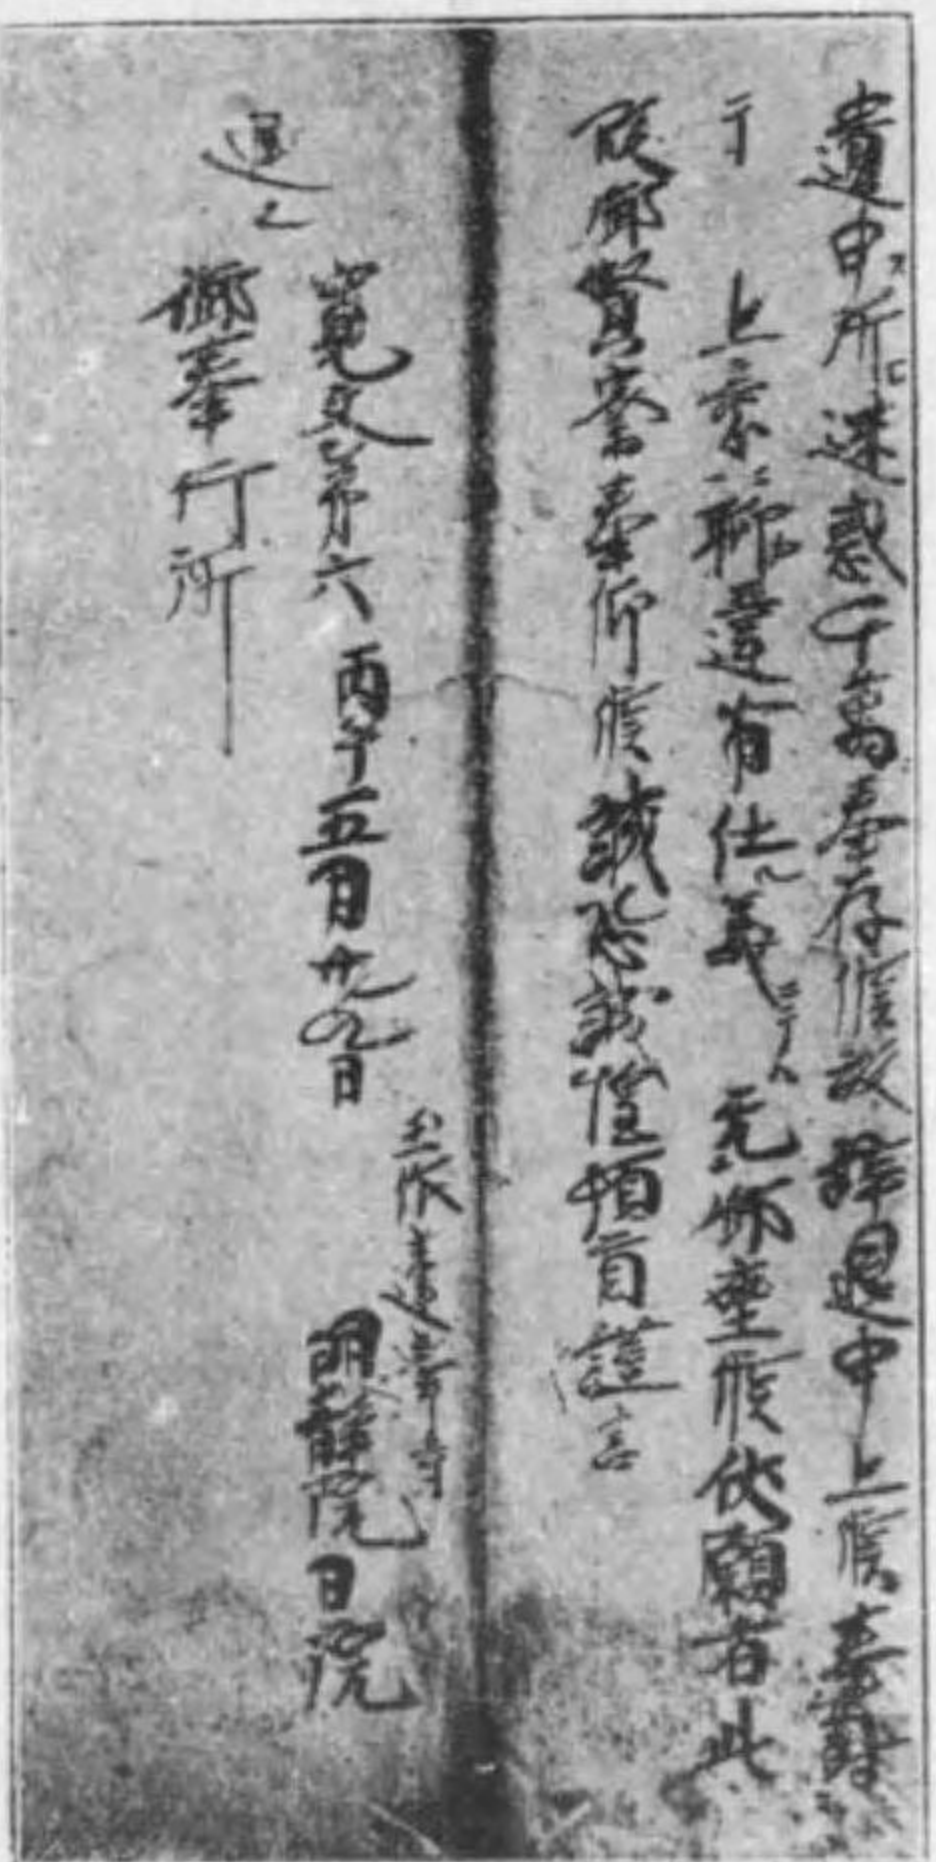 遣申ス所ニ迷惑千萬奉存候故辞退申上候
于
上意聊違背仕義ニテハ無御座候伏願者此
段御賢察奉仰候誠恐誠惶頓首謹言
寛文第六丙午五月廿九日
明靜院日浣
進上
御奉行所